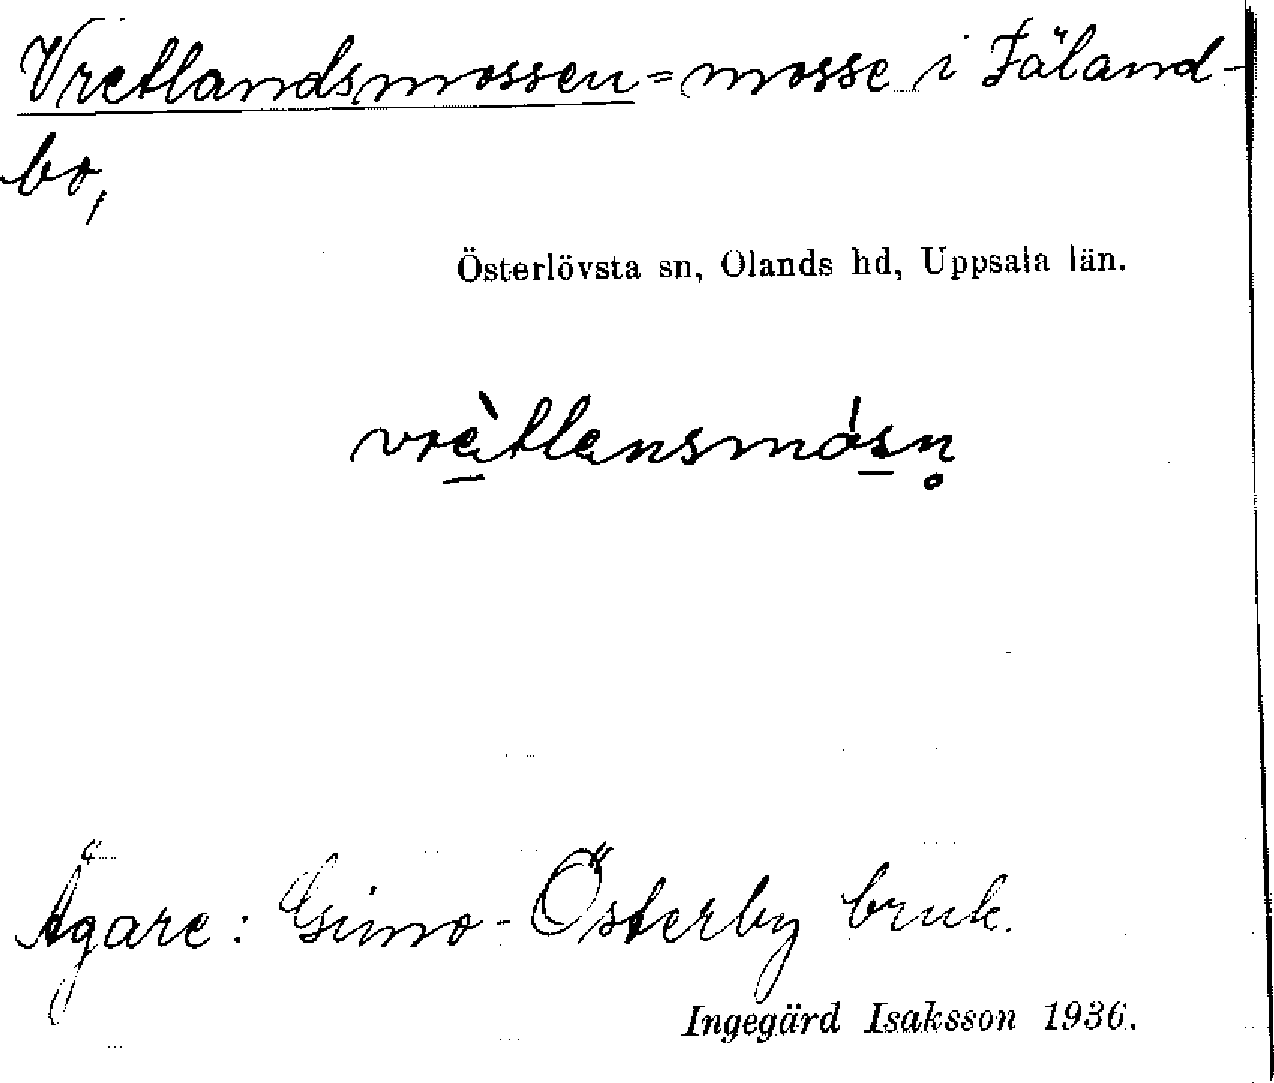 Vretlandsmossen = mosse i Fäland-
bo,
Österlövsta sn, Olands hd, Uppsala län.
vrètlansmósn̥
Ägare: Gimo-Österby bruk.
Ingegärd Isaksson 1936.